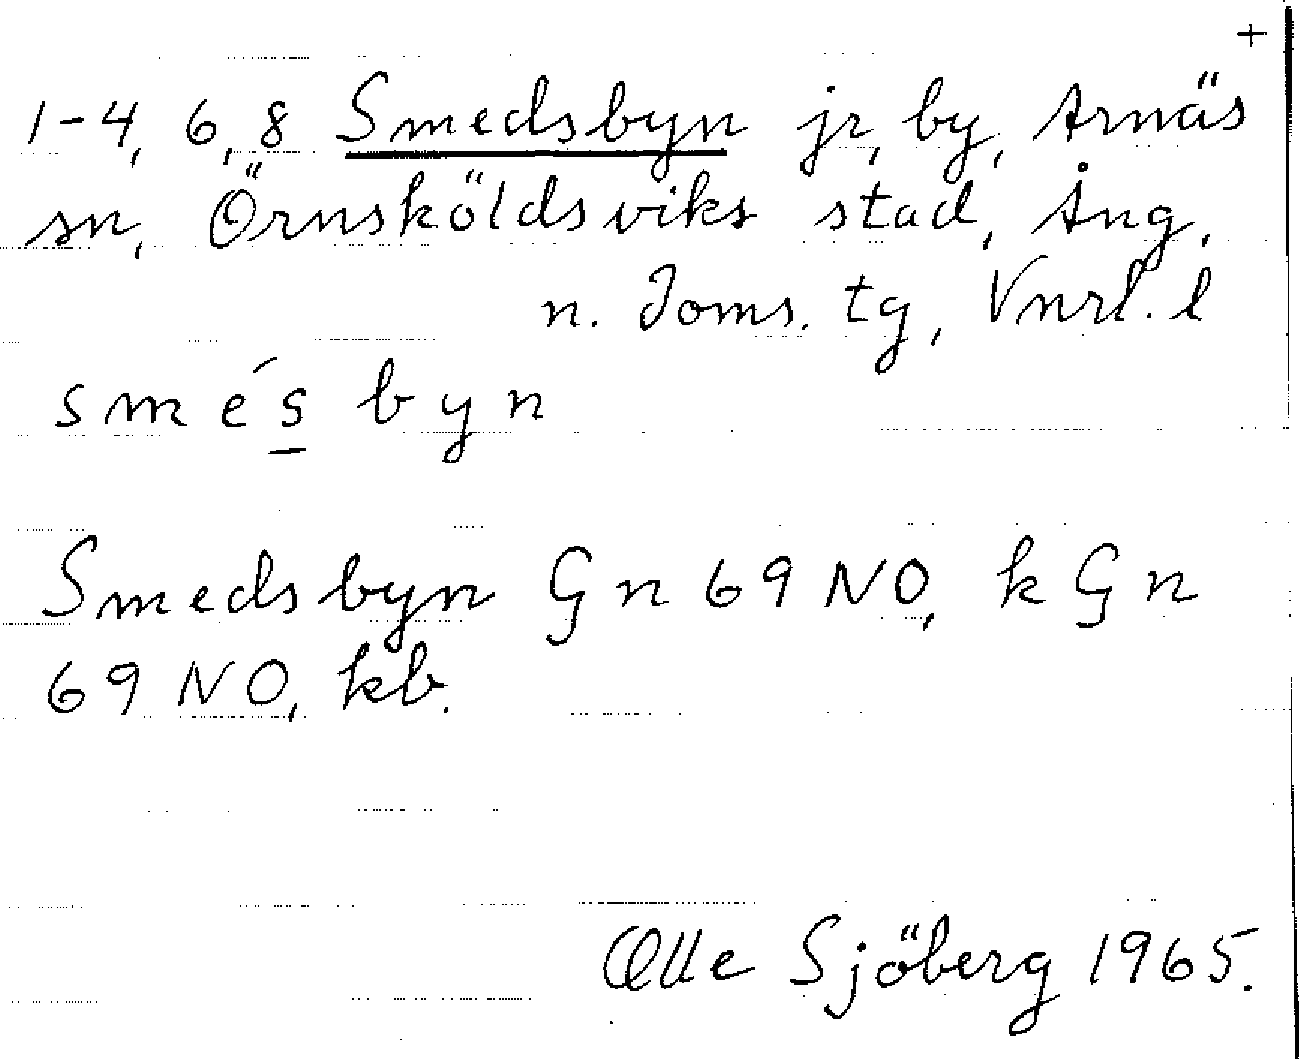 +
1-4, 6, 8 Smedsbyn jr, by, Arnäs
sn, Örnsköldsviks stad, Ång,
n. Doms. tg, Vnrl. l
smésbyn
Smedsbyn Gn 69 NO, k Gn
69 NO, kb.
Olle Sjöberg 1965.